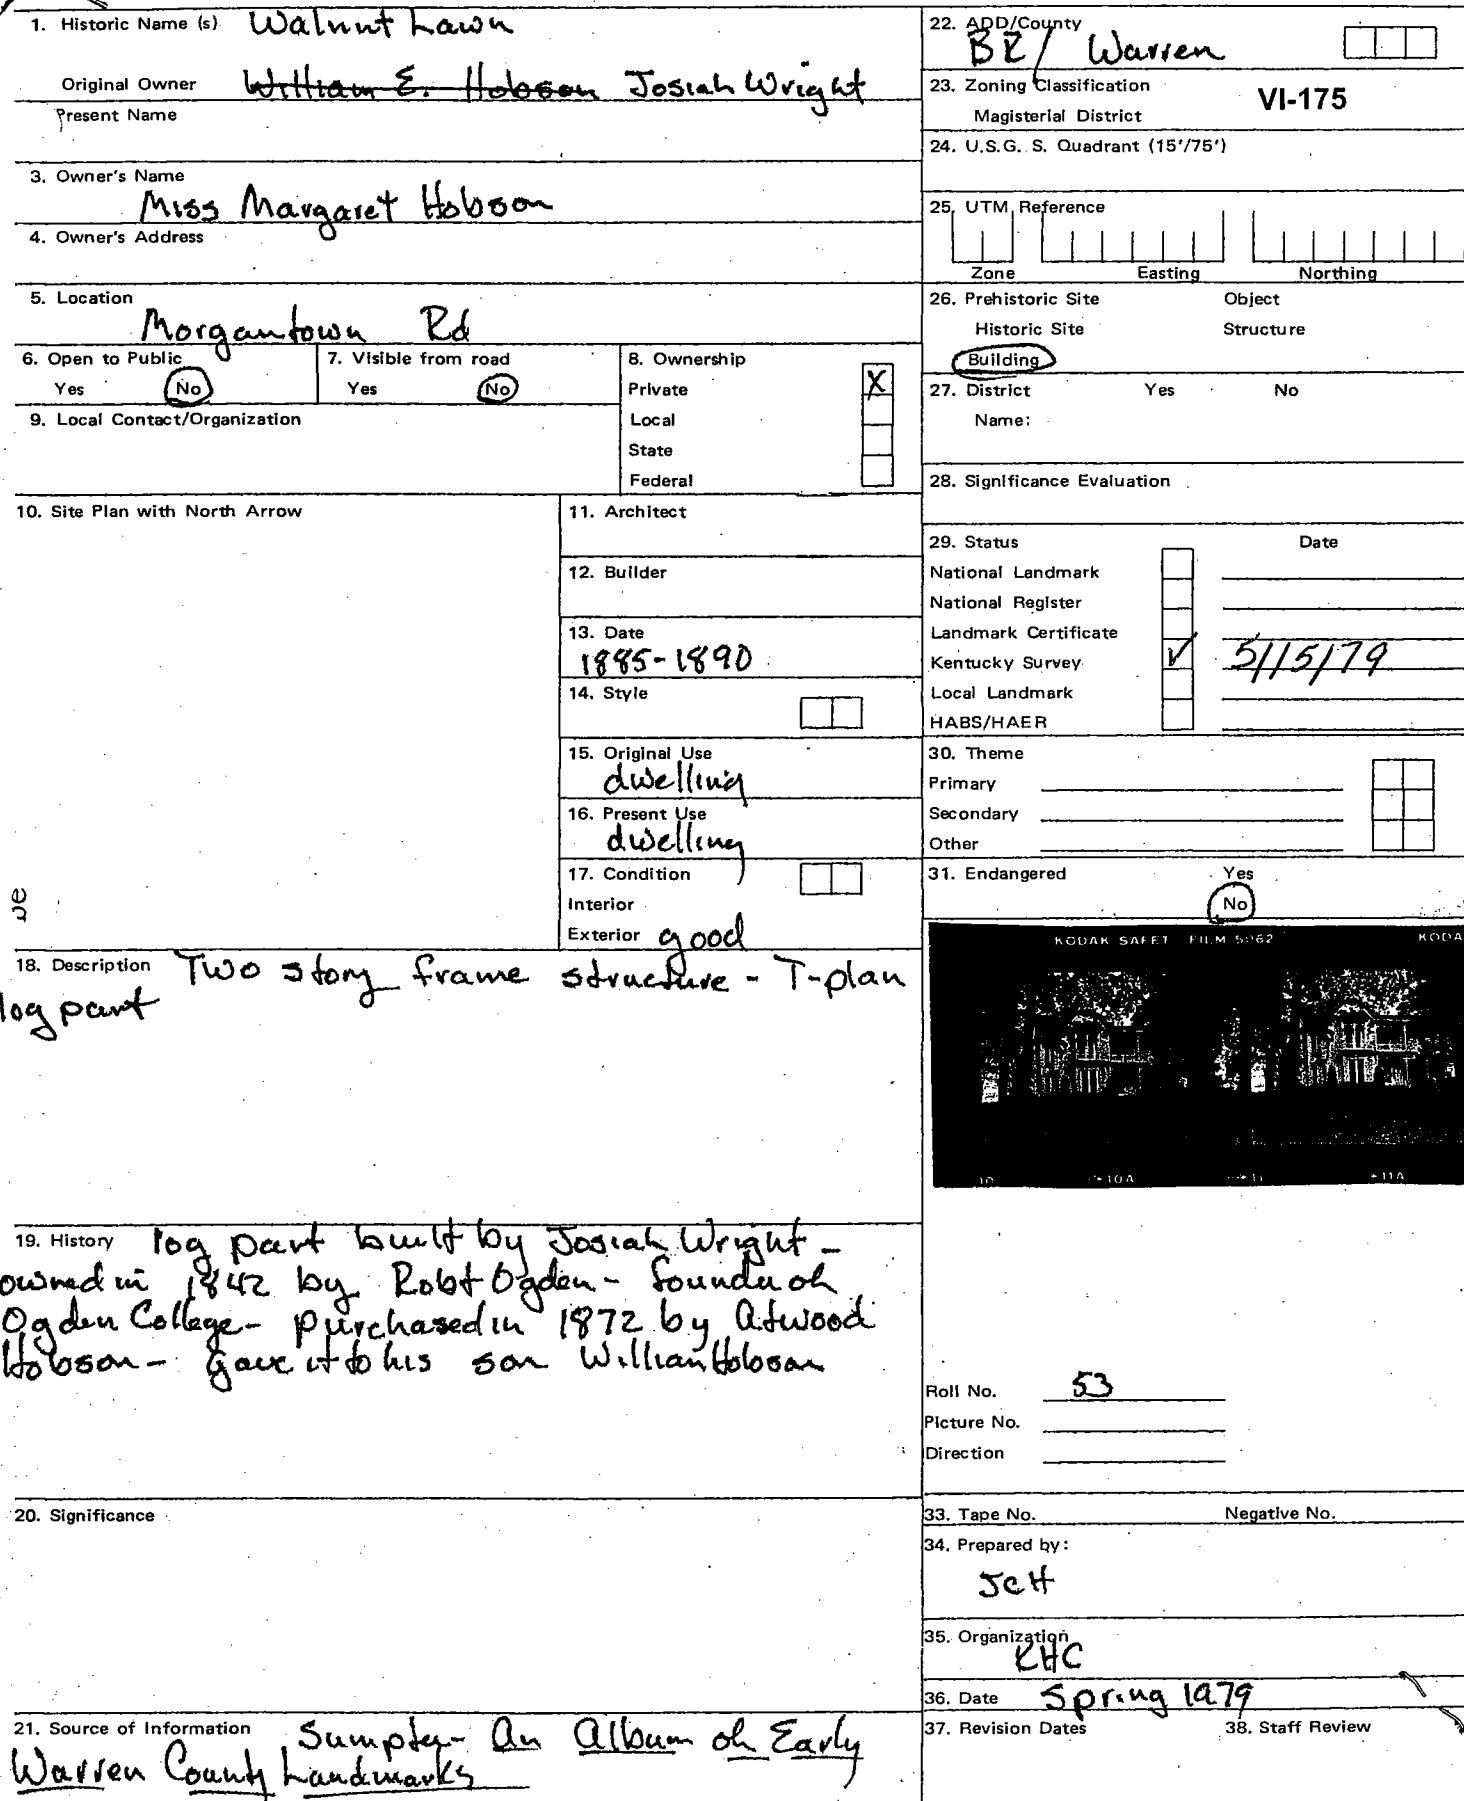 1. Historic Name (s) Walnut Lawn
Original Owner William E. Hobson Josiah Wright
Present Name
3. Owner's Name
Miss Margaret Hobson
4. Owner's Address
5. Location
Morgantown Rd
6. Open to Public
Yes No
7. Visible from road
Yes No
8. Ownership
Private X
Local
State
Federal
9. Local Contact/Organization
10. Site Plan with North Arrow
11. Architect
12. Builder
13. Date
1885-1890
14. Style
15. Original Use
dwelling
16. Present Use
dwelling
17. Condition
Interior
Exterior good
18. Description Two story frame structure - T-plan
log part
19. History log part built by Josiah Wright -
owned in 1842 by Robt Ogden - founder of
Ogden College - purchased in 1872 by Atwood
Hobson - gave it to his son William Hobson
20. Significance
21. Source of Information Sumpter - An Album of Early
Warren County Landmarks
22. ADD/County
BR / Warren
23. Zoning Classification
Magisterial District
VI-175
24. U.S.G.S. Quadrant (15'/75')
25. UTM Reference
Zone Easting Northing
26. Prehistoric Site Object
Historic Site Structure
Building
27. District Yes No
Name:
28. Significance Evaluation
29. Status Date
National Landmark
National Register
Landmark Certificate
Kentucky Survey ✓ 5/15/79
Local Landmark
HABS/HAER
30. Theme
Primary
Secondary
Other
31. Endangered Yes
No
KODAK SAFET FILM 5062 KODA
10 10A 11 11A
Roll No. 53
Picture No.
Direction
33. Tape No. Negative No.
34. Prepared by:
JCH
35. Organization
KHC
36. Date Spring 1979
37. Revision Dates 38. Staff Review